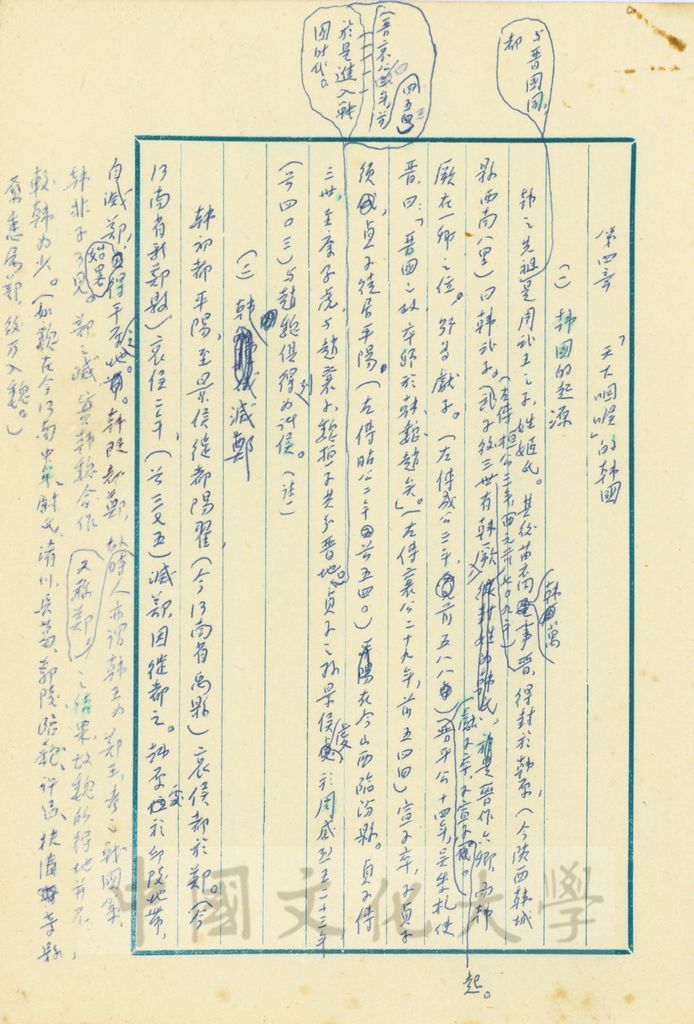 第四章 「天下咽喉」的韓國
(一) 韓國的起源
韓之先祖是周武王之子,姓姬氏。其後苗裔事晋,得封於韓原,(今陝西韓城
韓萬
縣西南八里)曰韓武子。武子後三世有韓厥,
(左傳桓公三年,西元前七〇九年)
晋作六卿,而韓
厥在一卿之位。號為獻子。(左傳成公三年,前五八八)
獻子卒,子宣子
晋平公十四年,吳季札使
晋,曰:「晋國之政卒歸於韓魏趙矣」。(左傳襄公二十九年,前五四四)宣子卒,子貞子
須,貞子徙居平陽。(左傳昭公二年 前五四〇)平陽在今山西臨汾縣。貞子傳
三世,至康子虎,与趙襄子、魏桓子共分晋地。貞子之孫景侯虔於周威烈王二十三年
(前四〇三)与趙魏俱得列為諸侯。(註一)
与晋國同
都
起。
於是進入韓
國时代。
(二) 韓滅鄭
韓初都平陽,至景侯徙都陽翟,(今河南省禹縣)哀侯都於鄭。(今
河南省新鄭縣)哀侯二年(前三七五)滅鄭因徙都之。韓原位於邱陵地帶,
自滅鄭,始得平原地帶。韓既都鄭,故時人亦謂韓王為鄭王,考之戰國策、
韓非子可見。鄭之滅,實韓魏合作
之結果,故魏的得地并不
較韓為少。(如魏在今河南中牟、尉氏、洧川、長葛、鄢陵、臨潁、許昌、扶溝等縣
原悉属鄭後乃入魏。)